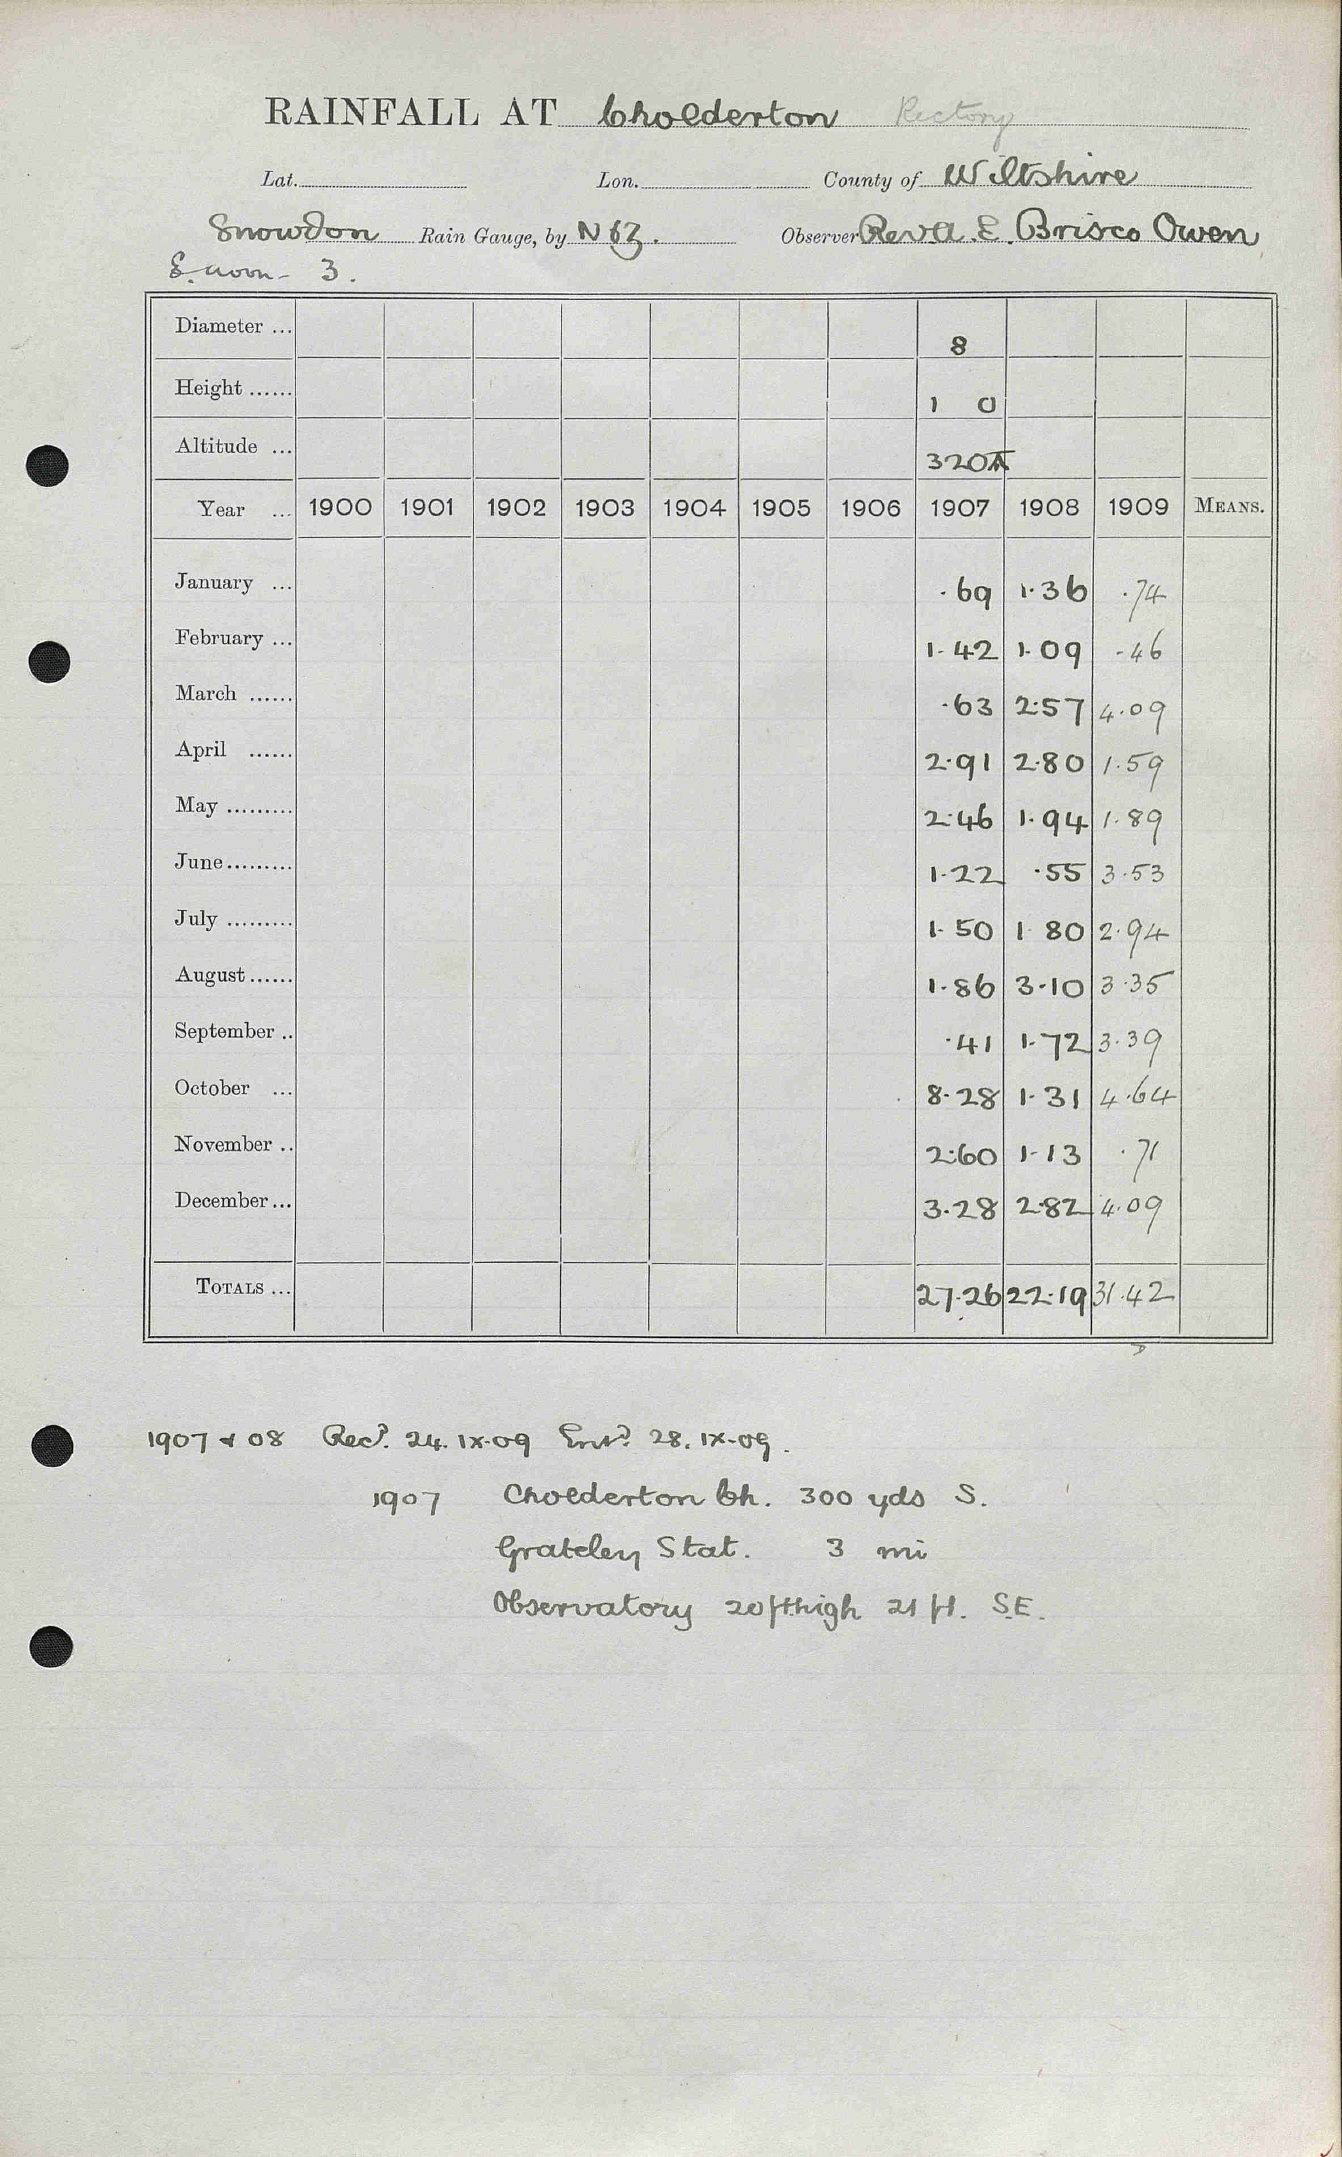 RAINFALL AT Cholderton Rectory
Lat. Lon. County of Wiltshire
Snowdon Rain Gauge, by N & Z. Observer Rev A. E. Brisco Owen
3.
Diameter ... 8
Height ...... 1 0
Altitude ... 320
Year ... 1900 1901 1902 1903 1904 1905 1906 1907 1908 1909 MEANS.
January ... .69 1.36 .74
February ... 1.42 1.09 .46
March ...... .63 2.57 4.09
April ...... 2.91 2.80 1.59
May ......... 2.46 1.94 1.89
June ......... 1.22 .55 3.53
July ......... 1.50 1 80 2.94
August ...... 1.86 3.10 3.35
September .. .41 1.72 3.39
October ... 8.28 1.31 4.64
November .. 2.60 1.13 .71
December ... 3.28 2.82 4.09
TOTALS ... 27.26 22.19 31.42
1907 & 08 Recd. 24.IX.09 Entd. 28.IX.09.
1907 Cholderton Ch. 300 yds S.
Grateley Stat. 3 mi
Observatory 20ft high 21 ft. S.E.